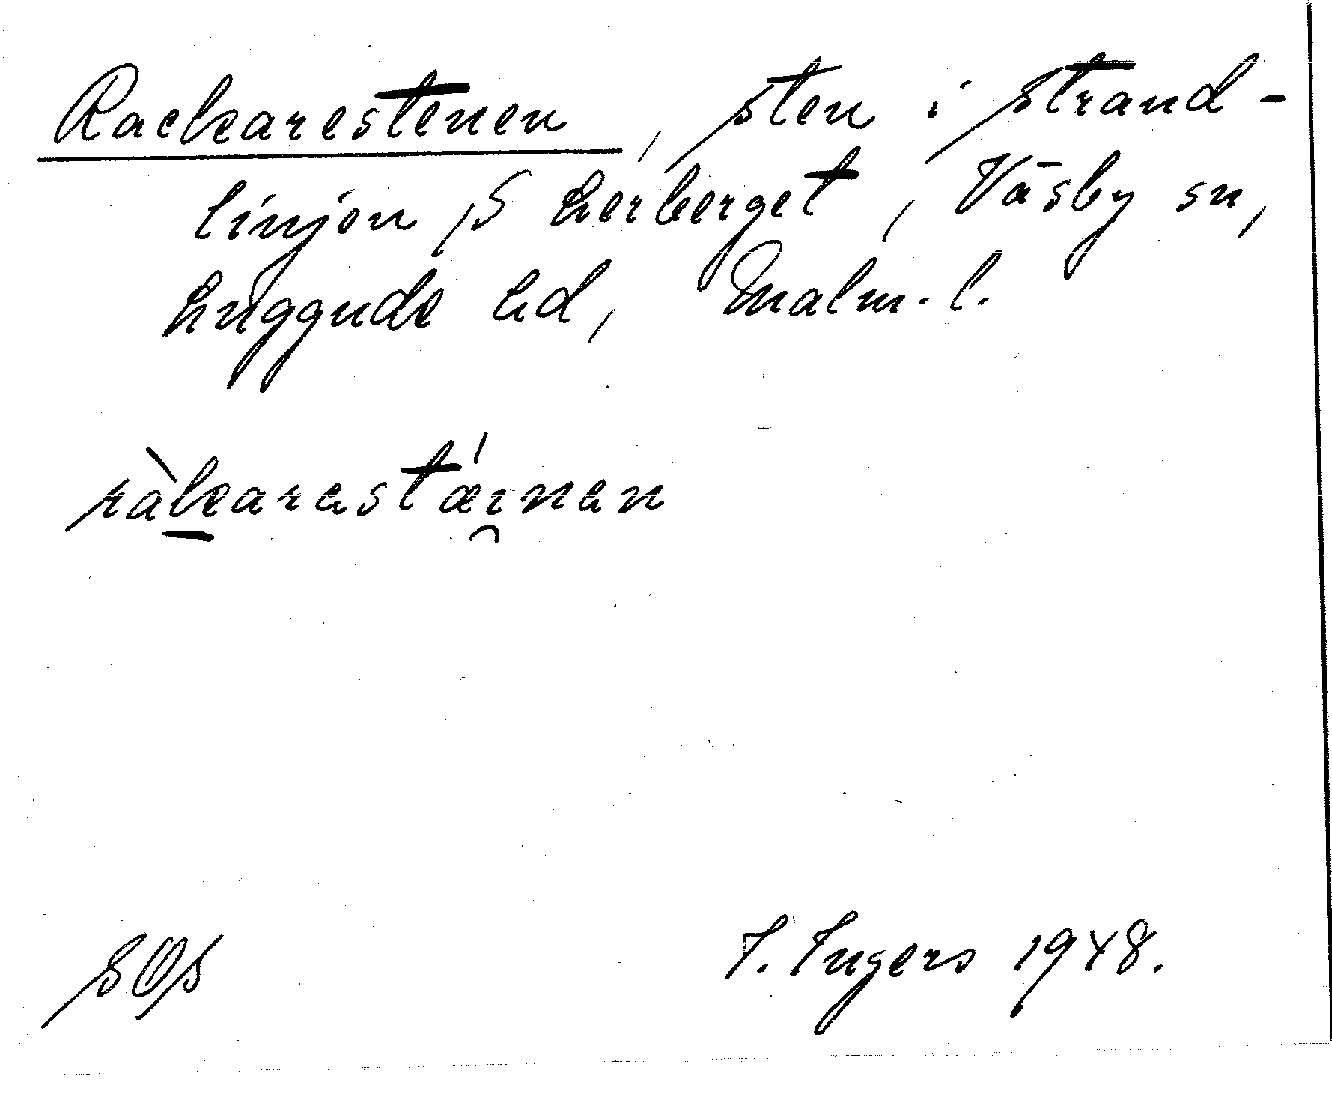 Rackarestenen, sten i strand-
linjen, S herberget, Väsby sn,
Luggude hd, Malm. l.
ràkarestǽi̯nen
SOS
I. Ingers 1948.